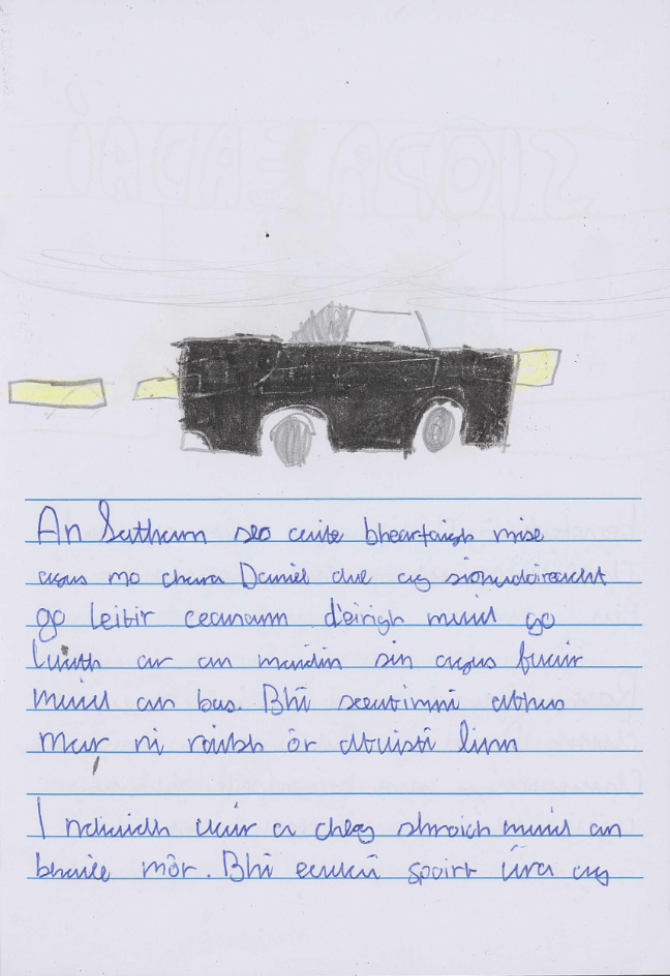 SIOPA EADAÍ
An Sathurn seo cuite bheartaigh mise
agus mo chara Daniel dul ag siopadóireacht
go Leitir ceanann d'éirigh muid go
luath ar an maidin sin agus fuair
muid an bus. Bhí sceitimní athus
mar ní raibh ár dtuistí linn
I ndiaidh uair a chlog shroich muid an
bhaile mór. Bhí eadaí spoirt úra ag